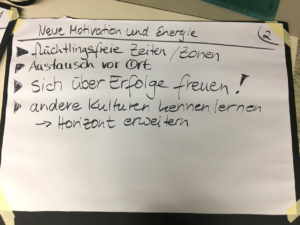 Neue Motivation und Energie 2
flüchtlingsfreie Zeiten / Zonen
Austausch vor Ort
sich über Erfolge freuen!
andere Kulturen kennen lernen
→ Horizont erweitern